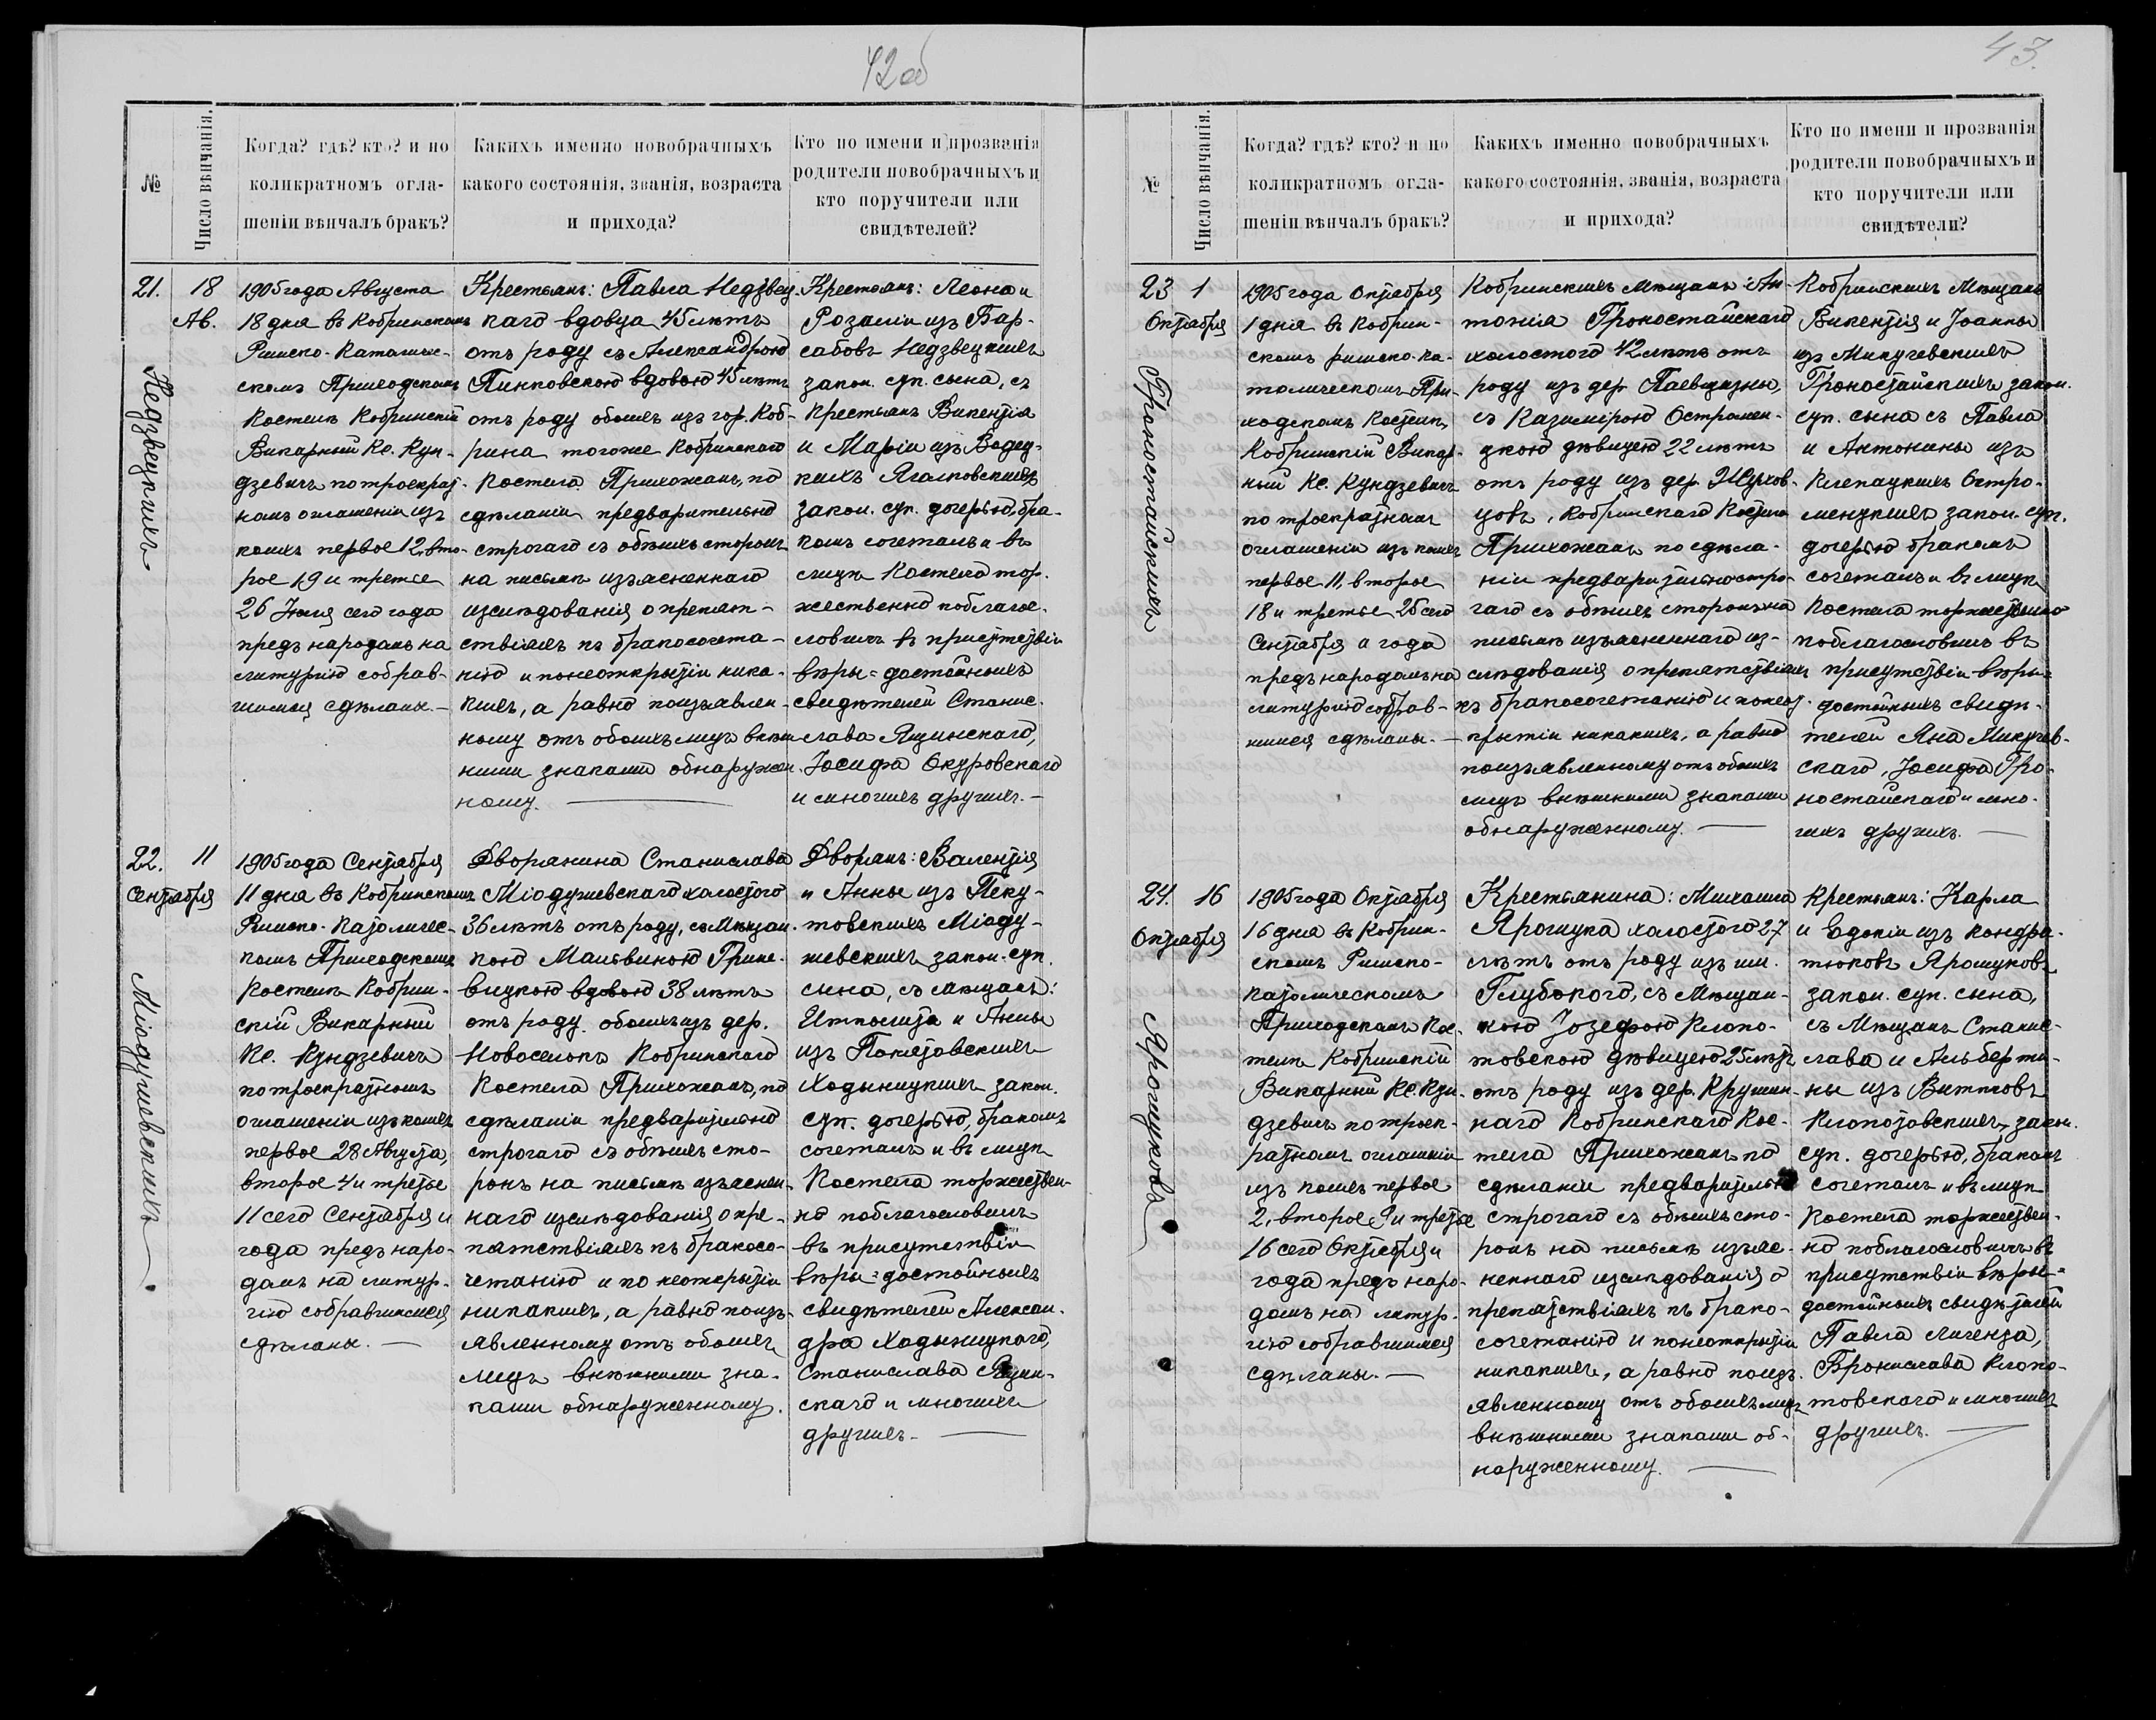 42об
№
Число вѣнчанія.
Когда? гдѣ? кто? и по
коликратномъ огла-
шеніи вѣнчалъ бракъ?
Какихъ именно новобрачныхъ
какого состоянія, званія, возраста
и прихода?
Кто по имени и прозванія
родители новобрачныхъ и
кто поручители или
свидѣтелей?
21.
18
Ав.
Недзвецкихъ
1905 года Августа
18 дня въ Кобринскомъ
Римско-Католичес-
комъ Приходскомъ
Костелѣ Кобринскій
Викарный Кс. Кун-
дзевичъ по троекрат-
номъ оглашеніи изъ
коихъ первое 12, вто-
рое 19 и третіе
26 Іюля сего года
предъ народомъ на
литургію собрав-
шимся сдѣланы.—
Крестьянъ: Павла Недзвец-
каго вдовца 45 лѣтъ
отъ роду съ Александрою
Пинковскою вдовою 45 лѣтъ
отъ роду обоихъ изъ гор. Коб-
рина тогоже Кобринскаго
Костела Прихожанъ, по
сдѣланіи предварительно
строгаго съ обѣихъ сторонъ
на письмѣ изъясненнаго
изслѣдованія о препят-
ствіяхъ къ бракосочета-
нію и понеоткрытіи ника-
кихъ, а равно поизъявлен-
ному отъ обоихъ лицъ внѣш
ними знаками обнаружен
ному.
Крестьянъ: Леона и
Розаліи изъ Бар-
сабовъ Недзвецкихъ
закон. суп. сына, съ
Крестьянъ Викентія
и Маріи изъ Водец-
кихъ Яголковскихъ
закон. суп. дочерью, бра-
комъ сочеталъ и въ
лицѣ Костела тор-
жественно поблагос-
ловилъ въ присутствіи
вѣры=достойныхъ
свидѣтелей Станис-
лава Ящинскаго,
Іосифа Окуровскаго
и многихъ другихъ.—
22.
11
Сентября
Міодушевскихъ
1905 года Сентября
11 дня въ Кобринскомъ
Римско-Католичес-
комъ Приходскомъ
Костелѣ Кобрин-
скій Викарный
Кс. Кундзевичъ
по троекратномъ
оглашеніи изъ коихъ
первое 28 Августа,
второе 4 и третіе
11 сего Сентября и
года предъ наро-
домъ на литур-
гію собравшимся
сдѣланы.—
Дворянина Станислава
Міодушевскаго холостого
36 лѣтъ отъ роду, съ Мѣщан-
кою Мальвиною Грине-
вицкою вдовою 38 лѣтъ
отъ роду обоихъ изъ дер.
Новоселокъ Кобринскаго
Костела Прихожанъ, по
сдѣланіи предварительно
строгаго съ обѣихъ сто-
ронъ на письмѣ изъяснен-
наго изслѣдованія о пре-
пятствіяхъ къ бракосо-
четанію и по неоткрытіи
никакихъ, а равно поизъ-
явленному отъ обоихъ
лицъ внѣшними зна-
ками обнаруженному.
Дворянъ: Валентія
и Анны изъ Пеку-
товскихъ Міоду-
шевскихъ закон. суп.
сына, съ Мѣщанъ:
Ипполита и Анны
изъ
Ходыницкихъ закон.
суп. дочерью, бракомъ
сочеталъ и въ лицѣ
Костела торжествен-
но поблагословилъ
въ присутствіи
вѣры=достойныхъ
свидѣтелей Алексан-
дра Ходыницкаго,
Станислава Ящин-
скаго и многихъ
другихъ.—
43.
№
Число вѣнчанія.
Когда? гдѣ? кто? и по
коликратномъ огла-
шеніи вѣнчалъ бракъ?
Какихъ именно новобрачныхъ
какого состоянія, званія, возраста
и прихода?
Кто по имени и прозванія
родители новобрачныхъ и
кто поручители или
свидѣтели?
23
1
Октября
Гроностайскихъ
1905 года Октября
1 дня въ Кобрин-
скомъ римско-ка-
толическомъ При-
ходскомъ Костелѣ,
Кобринскій Викар-
ный Кс. Кундзевичъ
по троекратномъ
оглашеніи изъ коихъ
первое 11, второе
18 и третіе 25 сего
Сентября и года
предъ народомъ на
литургію собрав-
шимся сдѣланы.—
Кобринскихъ Мѣщанъ: Ан-
тонія Гроностайскаго
холостого 42 лѣтъ отъ
роду изъ дер.
съ Казимірою Остромен-
цкою дѣвицею 22 лѣтъ
отъ роду изъ дер. Жухов-
цовъ, Кобринскаго Костела
Прихожанъ по сдѣла-
ніи предварительно стро-
гаго съ обѣихъ сторонъ на
письмѣ изъясненнаго из-
слѣдованія о препятствіяхъ
къ бракосочетанію и понеот-
крытіи никакихъ, а равно
поизъявленному отъ обоихъ
лицъ внѣшними знаками
обнаруженному.
Кобринскихъ Мѣщанъ
Викентія и Іоанны
изъ Микучевскихъ
Гроностайскихъ закон.
суп. сына съ Павла
и Антонины изъ
Клепацкихъ Остро-
менцкихъ закон. суп.
дочерью бракомъ
сочеталъ и въ лицѣ
Костела торжественно
поблагословилъ въ
присутствіи вѣры=
достойныхъ свидѣ-
телей Яна Микучев-
скаго, Іосифа Гро-
ностайскаго и мно-
гихъ другихъ.—
24.
16
Октября
Ярошуковъ
1905 года Октября
16 дня въ Кобрин-
скомъ Римско-
Католическомъ
Приходскомъ Кос-
телѣ Кобринскій
Викарный Кс. Кун-
дзевичъ по троек-
ратномъ оглашеніи
изъ коихъ первое
2, второе 9 и третіе
16 сего Октября и
года предъ наро-
домъ на литур-
гію собравшимся
сдѣланы.—
Крестьянина: Михаила
Ярошука холостого 27
лѣтъ отъ роду изъ им.
Глубокого, съ Мѣщан-
кою Іозефою Клопо-
товскою дѣвицею 25 лѣтъ
отъ роду изъ дер. Крушин-
наго Кобринскаго Кос-
тела Прихожанъ по
сдѣланіи предварительно
строгаго съ обѣихъ сто-
ронъ на письмѣ изъяс-
неннаго изслѣдованія о
препятствіяхъ къ брако-
сочетанію и понеоткрытіи
никакихъ, а равно поизъ-
явленному отъ обоихъ лицъ
внѣшними знаками об-
наруженному.
Крестьянъ: Карла
и Евдокіи изъ Кондра-
тюковъ Ярошуковъ
закон. суп. сына,
съ Мѣщанъ Станис-
лава и Альберти-
ны изъ Витковъ
Клопотовскихъ закон.
суп. дочерью, бракомъ
сочеталъ и въ лицѣ
Костела торжествен-
но поблагословилъ въ
присутствіи вѣры=
достойныхъ свидѣтелей
Павла Лигенза,
Бронислава Клопо-
товскаго и многихъ
другихъ.—